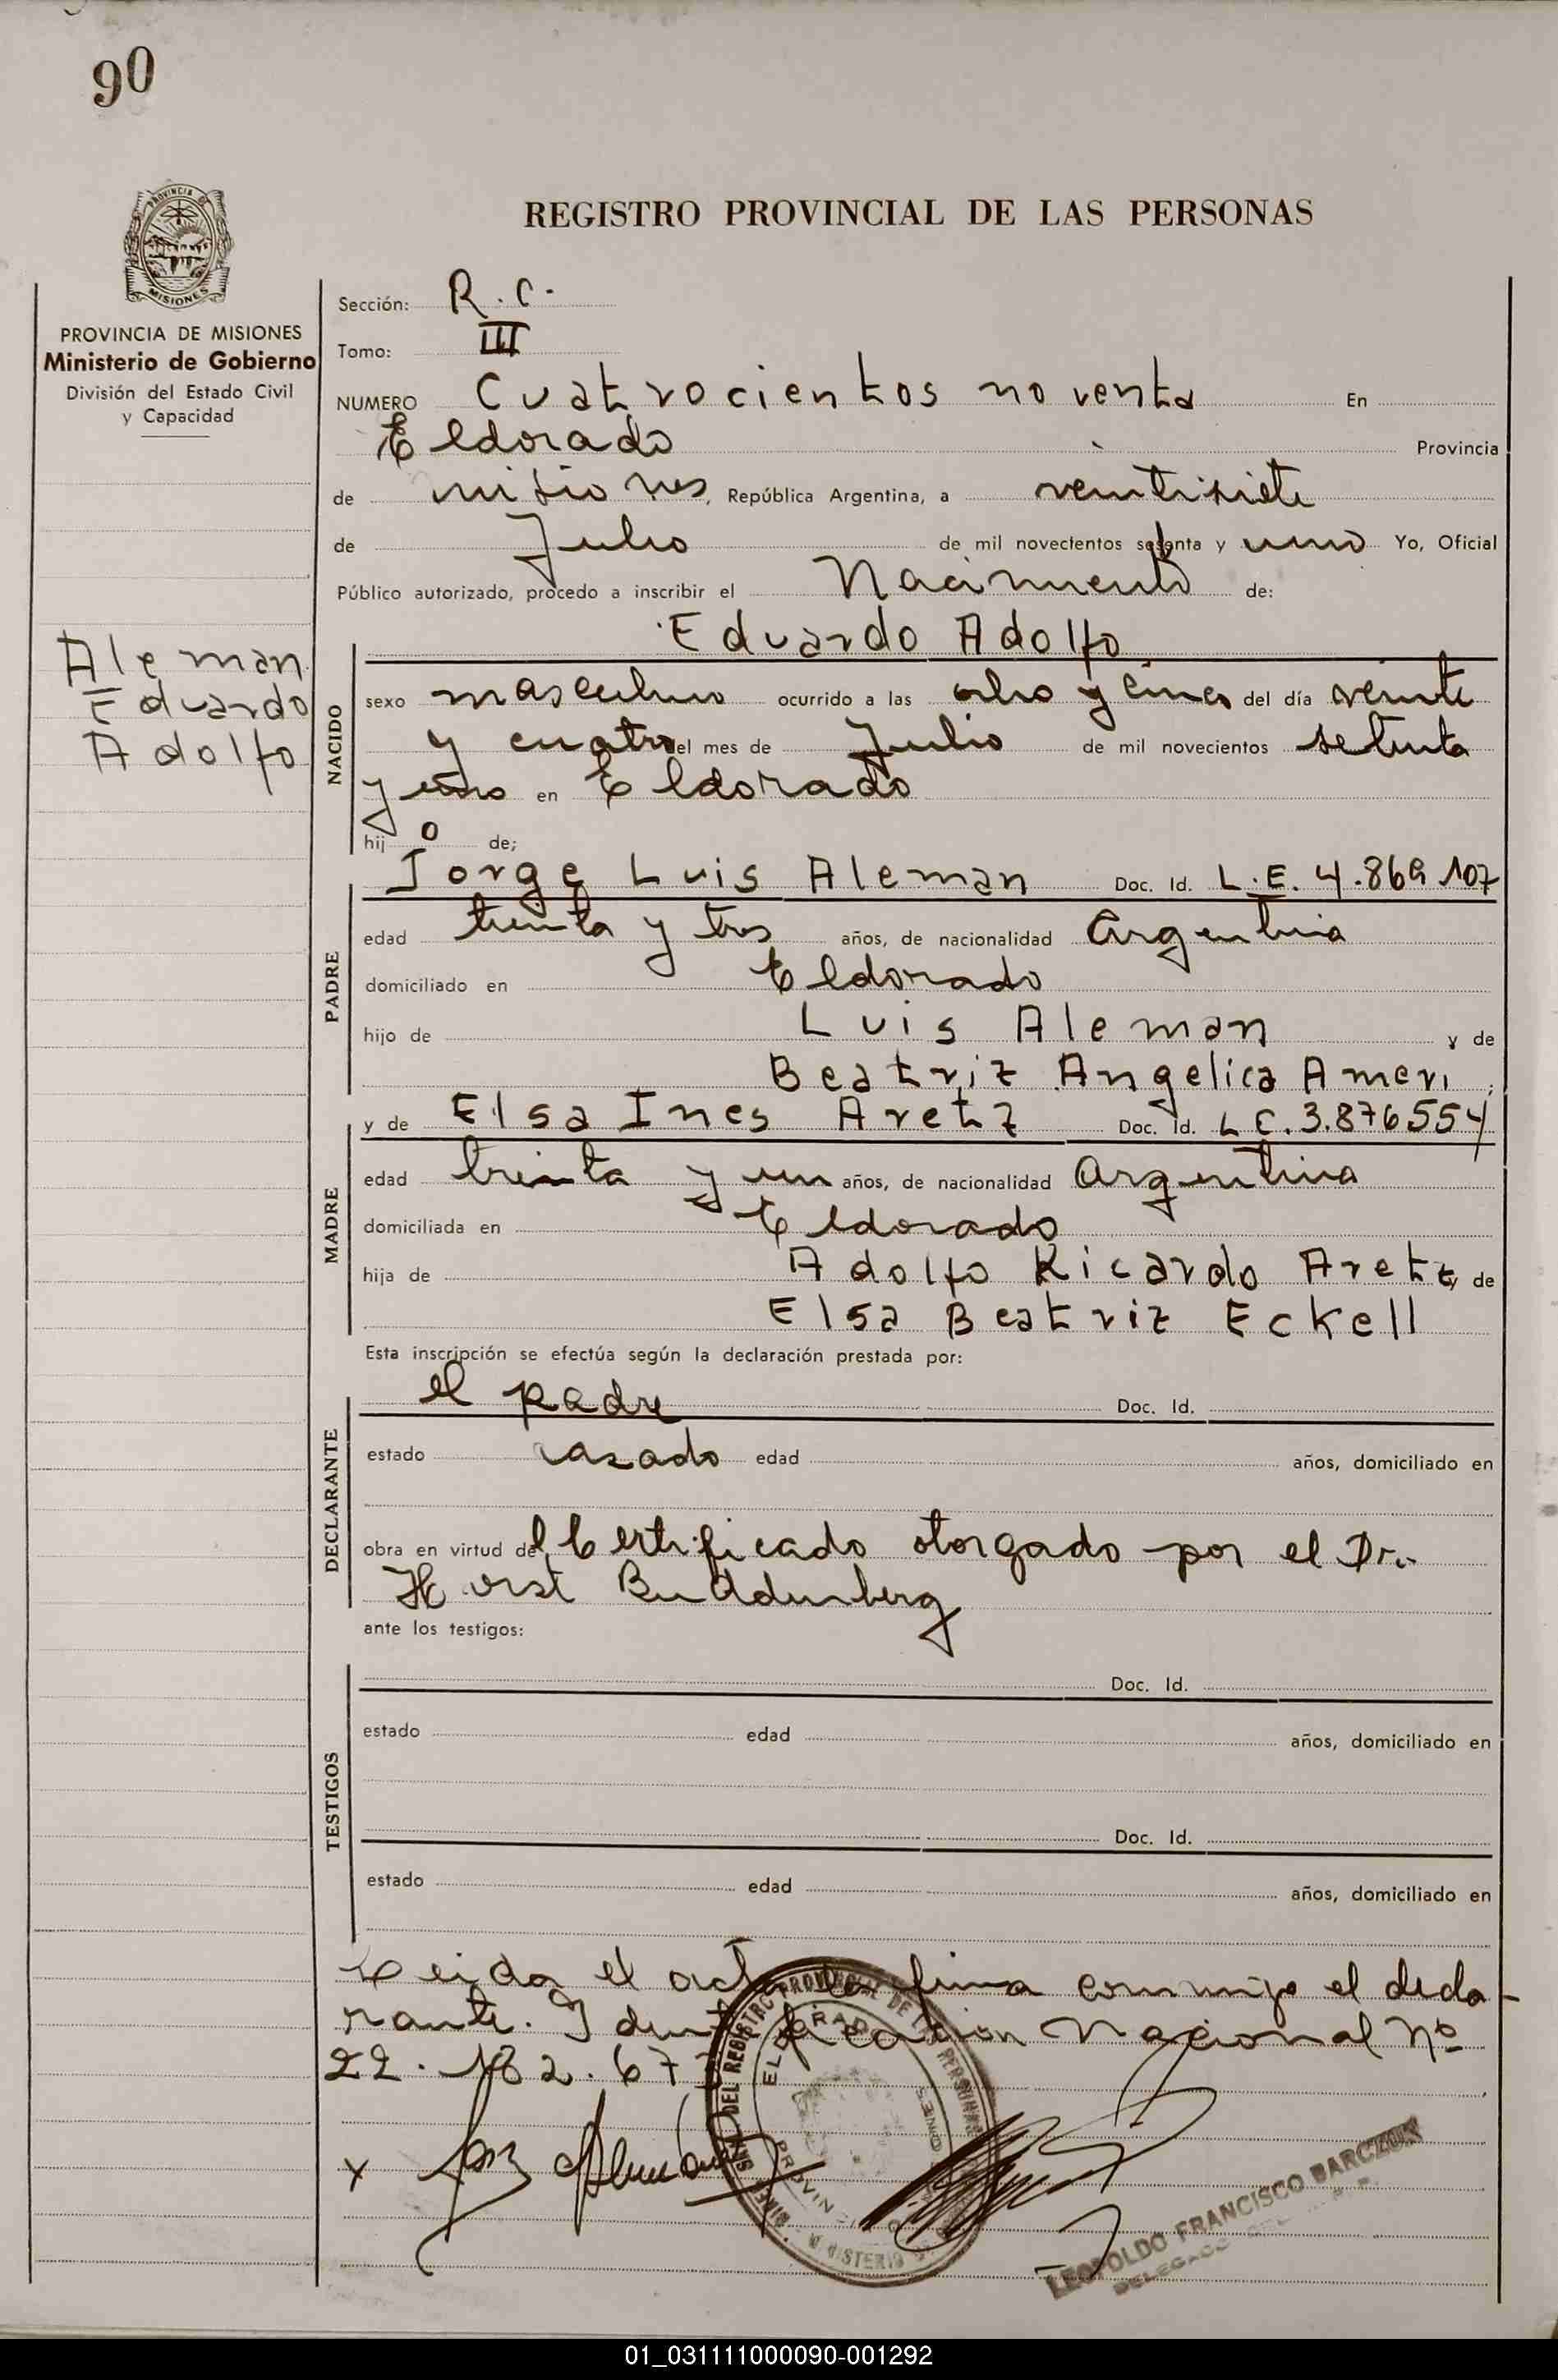 90
PROVINCIA DE
MISIONES
REGISTRO PROVINCIAL DE LAS PERSONAS
PROVINCIA DE MISIONES
Ministerio de Gobierno
División del Estado Civil
y Capacidad
Sección: R.C.
Tomo: III
NUMERO Cuatrocientos noventa En
Eldorado Provincia
de misiones, República Argentina, a veintisiete
de Julio de mil novecientos setenta y uno Yo, Oficial
Público autorizado, procedo a inscribir el Nacimiento de:
Aleman
Eduardo
Adolfo
NACIDO
Eduardo Adolfo
sexo masculino ocurrido a las ocho y cinco del día veinte
y cuatro del mes de Julio de mil novecientos setenta
y uno en Eldorado
hijo de;
PADRE
Jorge Luis Aleman Doc. Id. L.E. 4.869.107
edad treinta y tres años, de nacionalidad Argentina
domiciliado en Eldorado
hijo de Luis Aleman y de
Beatriz Angelica Ameri;
MADRE
y de Elsa Ines Aretz Doc. Id. L C. 3.876554
edad treinta y un años, de nacionalidad Argentina
domiciliada en Eldorado
hija de Adolfo Ricardo Aretz y de
Elsa Beatriz Eckell
Esta inscripción se efectúa según la declaración prestada por:
DECLARANTE
el padre Doc. Id.
estado casado edad años, domiciliado en
obra en virtud del Certificado otorgado por el Dr.
Horst Buddenberg
ante los testigos:
TESTIGOS
Doc. Id.
estado edad años, domiciliado en
Doc. Id.
estado edad años, domiciliado en
Leida el acta la firma conmigo el decla-
rante. Identificación Nacional Nº
22.182.67
x
DEL REGISTRO PROVINCIAL DE LAS PERSONAS
ELDORADO
LEOPOLDO FRANCISCO BARCZUK
01_031111000090-001292